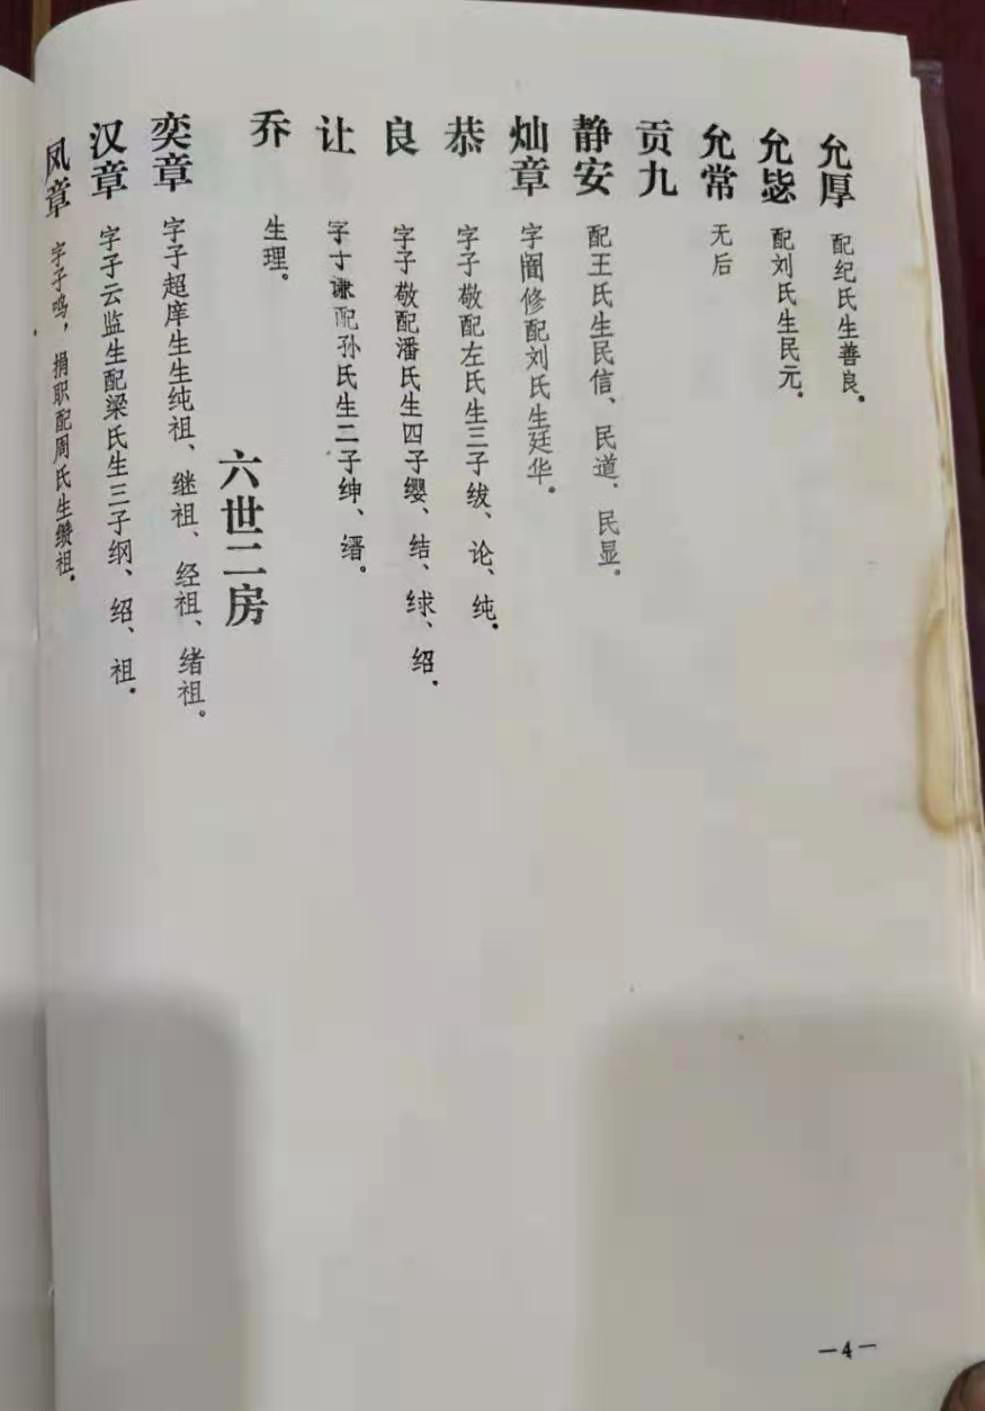 允厚 配纪氏生善良.
允毖 配刘氏生民元.
允常 无后
贡九
静安 配王氏生民信、民道、民显。
灿章 字阁修配刘氏生廷华。
恭 字子敬配左氏生三子绂、论、纯.
良 字子敬配潘氏生四子缨、结、绿、绍.
让 字寸谦配孙氏生二子绅、缙。
乔 生理。
六世二房
奕章 字子超庠生生纯祖、继祖、经祖、绪祖。
汉章 字子云监生配梁氏生三子纲、绍、祖.
凤章 字子鸣，捐职配周氏生缵祖.
—4—